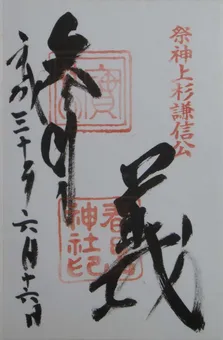 祭神上杉謙信公
義
奉拝
春日山神社印
平成三十年六月十六日